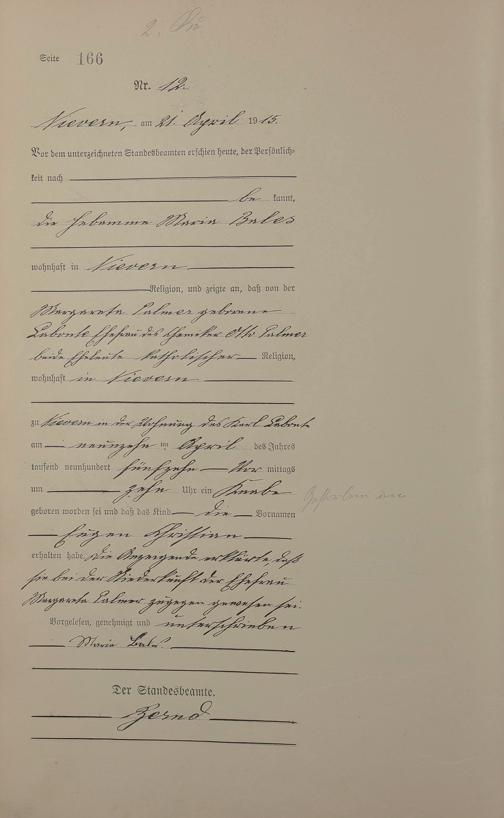 2.
Seite 166
Nr. 12.
Nievern, am 21. April 1915.
Vor dem unterzeichneten Standesbeamten erschien heute, der Persönlich-
keit nach
be kannt,
die Hebamme Maria Bales
wohnhaft in Nievern
Religion, und zeigte an, daß von der
Margareta Palmer geborene
Labonte Ehefrau des Chemiker Otto Palmer
beide Eheleute katholischer Religion,
wohnhaft in Nievern
zu Nievern in der Wohnung des Karl Labonte
am neunzehn ten April des Jahres
tausend neunhundert fünfzehn Vor mittags
um zehn Uhr ein Knabe
geboren worden sei und daß das Kind die Vornamen
Eugen Christian
erhalten habe. Die Anzeigende erklärte, daß
sie bei der Niederkunft der Ehefrau
Margareta Palmer zugegen gewesen sei.
Vorgelesen, genehmigt und unterschrieben
Maria Bales
Der Standesbeamte.
Gestorben am